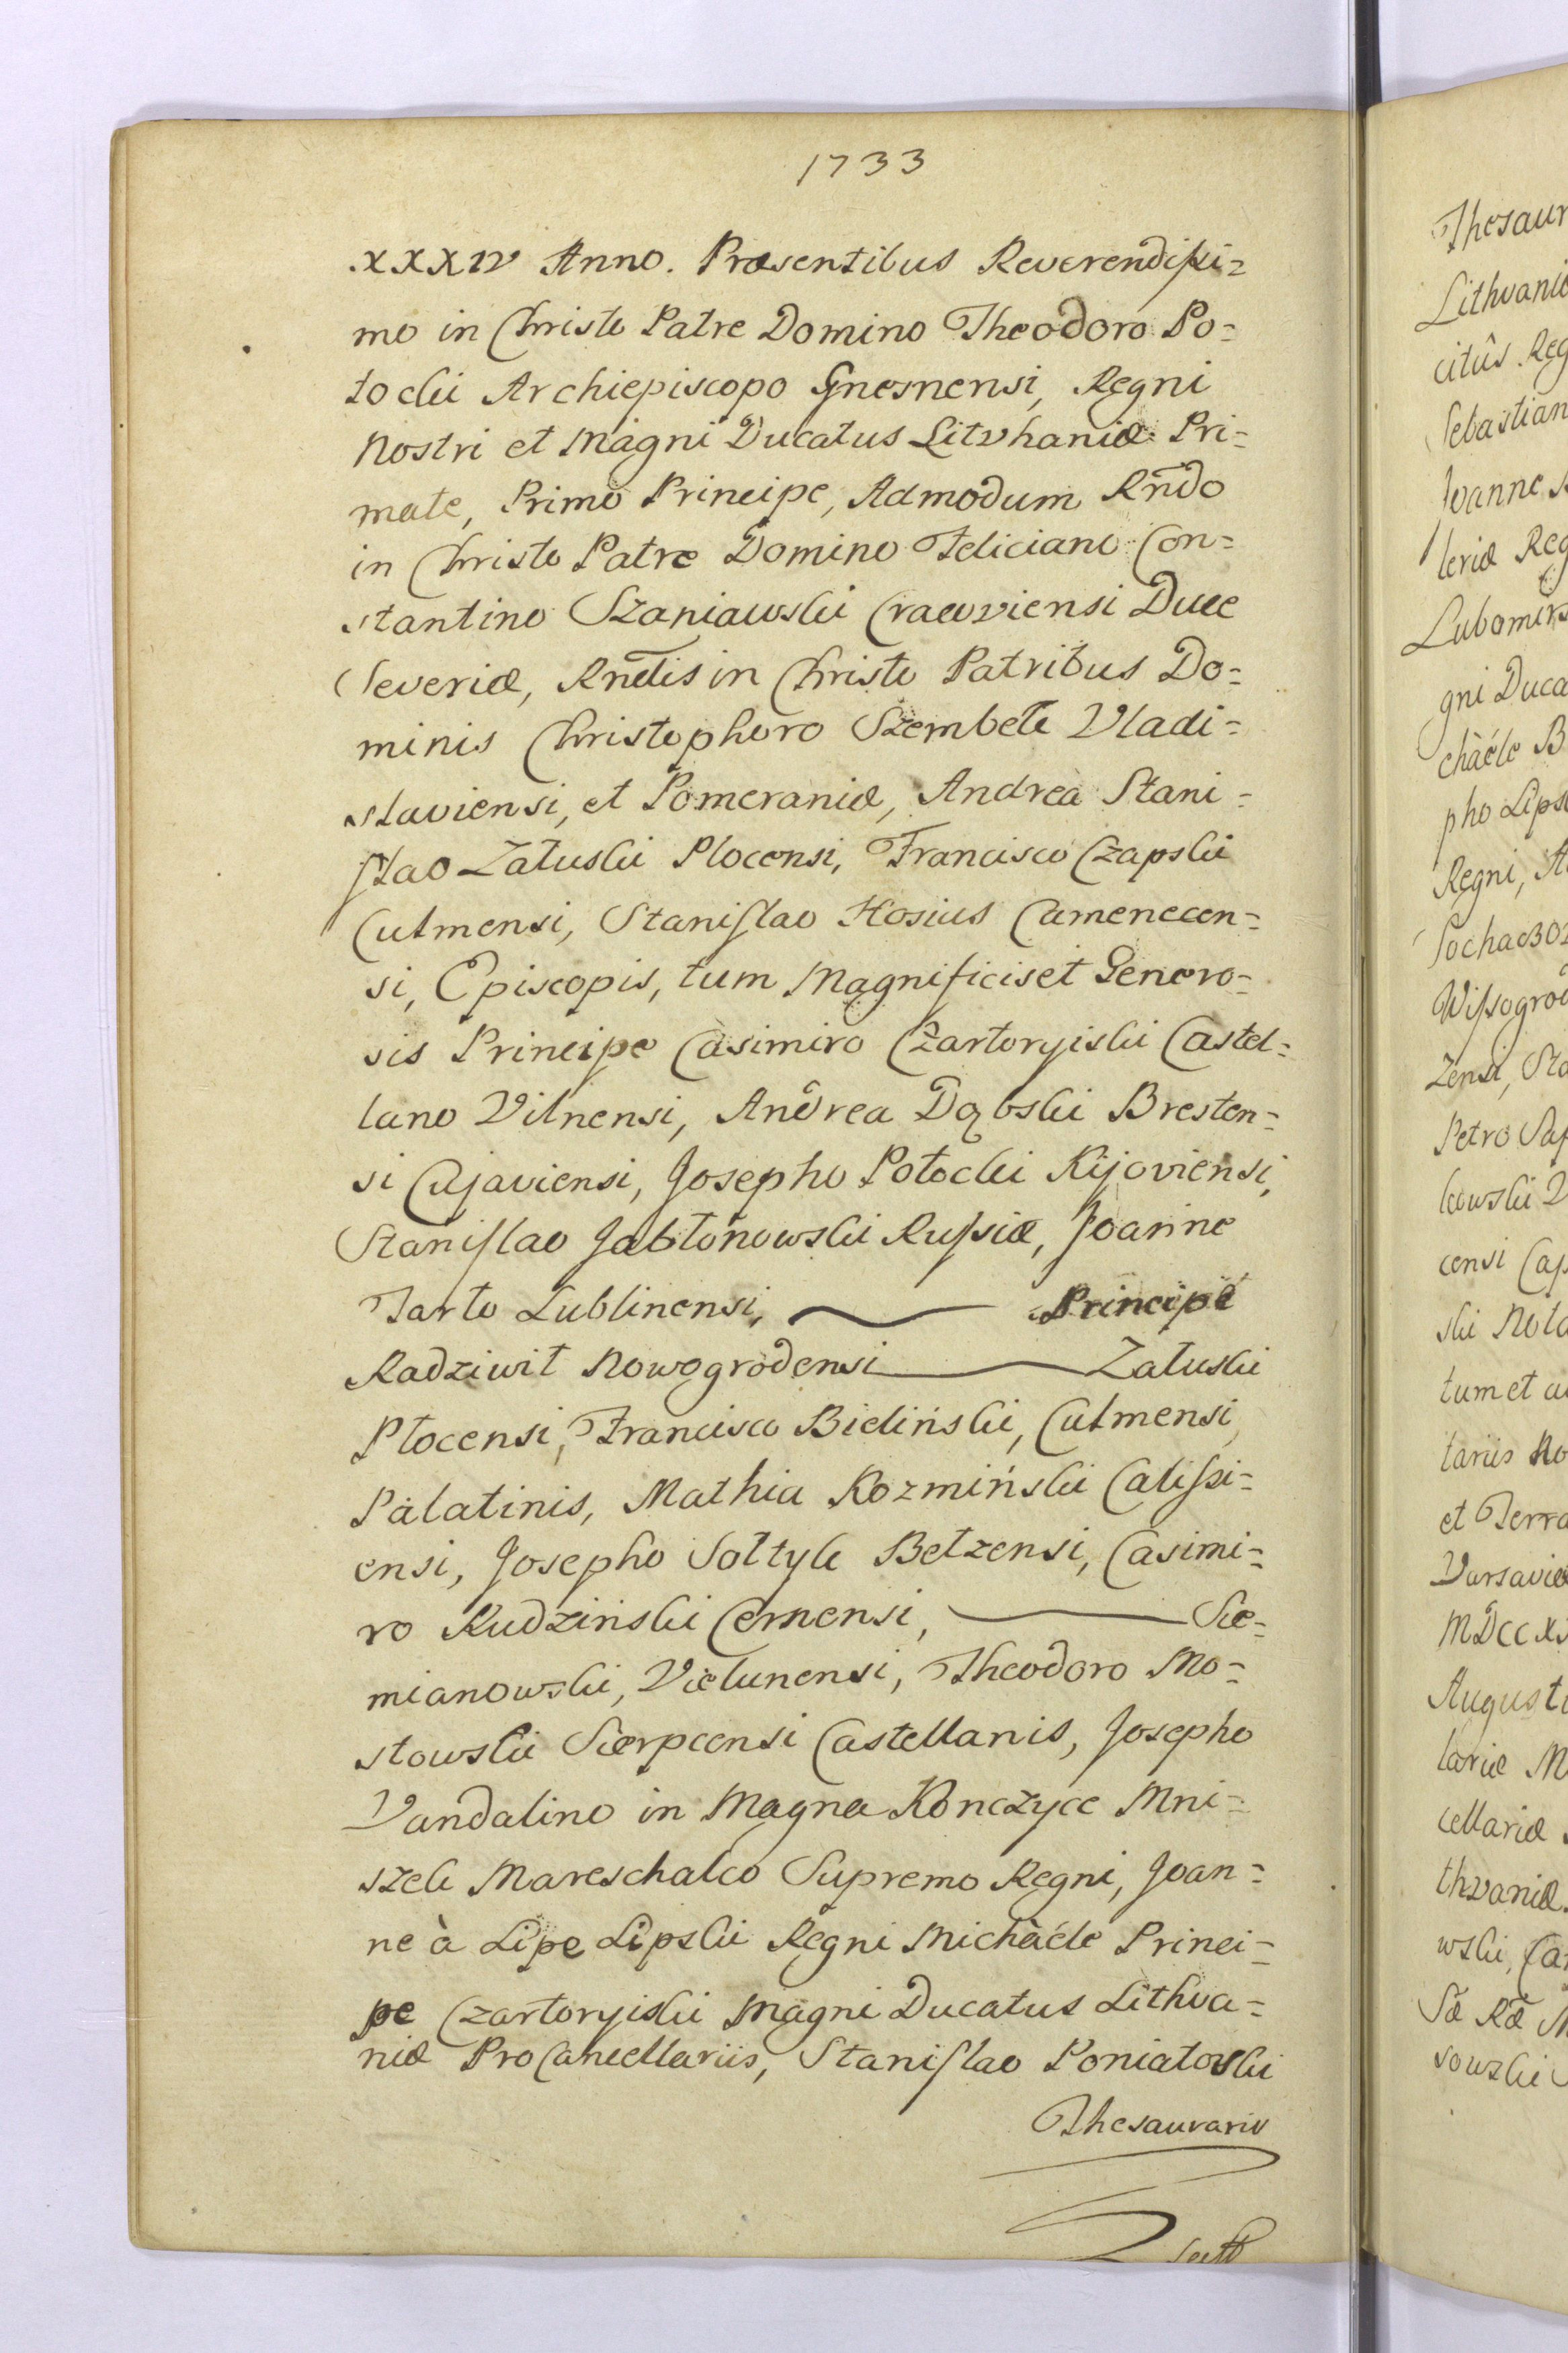 1733
XXXIV Anno. Præsentibus Reverendissi=
mo in Christo Patre Domino Theodoro Po=
tocki Archiepiscopo Gnesnensi, Regni
Nostri et Magni Ducatus Litvhaniæ Pri=
mate, Primo Principe, Admodum Rñdo
in Christo Patre Domino Feliciano Con=
stantino Szaniawski Cracoviensi Duce
Severiæ, Rndis in Christo Patribus Do=
minis Christophoro Szembek Vladi=
slaviensi, et Pomeraniæ, Andrea Stani=
slao Załuski Plocensi, Francisco Czapski
Culmensi, Stanislao Hosius Camenecen=
si, Episcopis, tum Magnificis et Genero=
sis Principe Casimiro Czartoryiski Castel=
lano Vilnensi, Andrea Dąbski Bresten=
si Cujaviensi, Josepho Potocki Kijoviensi,
Stanislao Jabłonowski Russiæ, Joanne
Tarło Lublinensi, Principe
Radziwił Nowogrodensi Załuski
Płocensi, Francisco Bieliński, Culmensi,
Palatinis, Mathia Kozmiński Calissi=
ensi, Josepho Sołtyk Bełzensi, Casimi=
ro Rudziński Cernensi, Sie=
mianowski, Vielunensi, Theodoro Mo=
stowski Sierpcensi Castellanis, Josepho
Vandalino in Magna Kończyce Mni=
szek Mareschalco Supremo Regni, Joan=
ne à Lipe Lipski Regni Michàéle Princi=
pe Czartoryiski Magni Ducatus Lithva=
niæ ProCancellariis, Stanislao Poniatowski
Thesaurario
Thesaur
Lithvaniæ
citûs. Reg
Sebastian
Joanne
leriæ Reg
Lubomirs
gni Duca
chàéle B
pho Lips
Regni, A
Sochaczo
Wissogrod
Zensi, Sta
Petro Sap
kowski V
censi Cap
ski Nota
tum et a
tariis No
et Terra
Varsaviæ
MDCCX
Augusti
lariæ M
cellariæ
thvaniæ.
wski, Ca
Sæ Ræ M
sowski